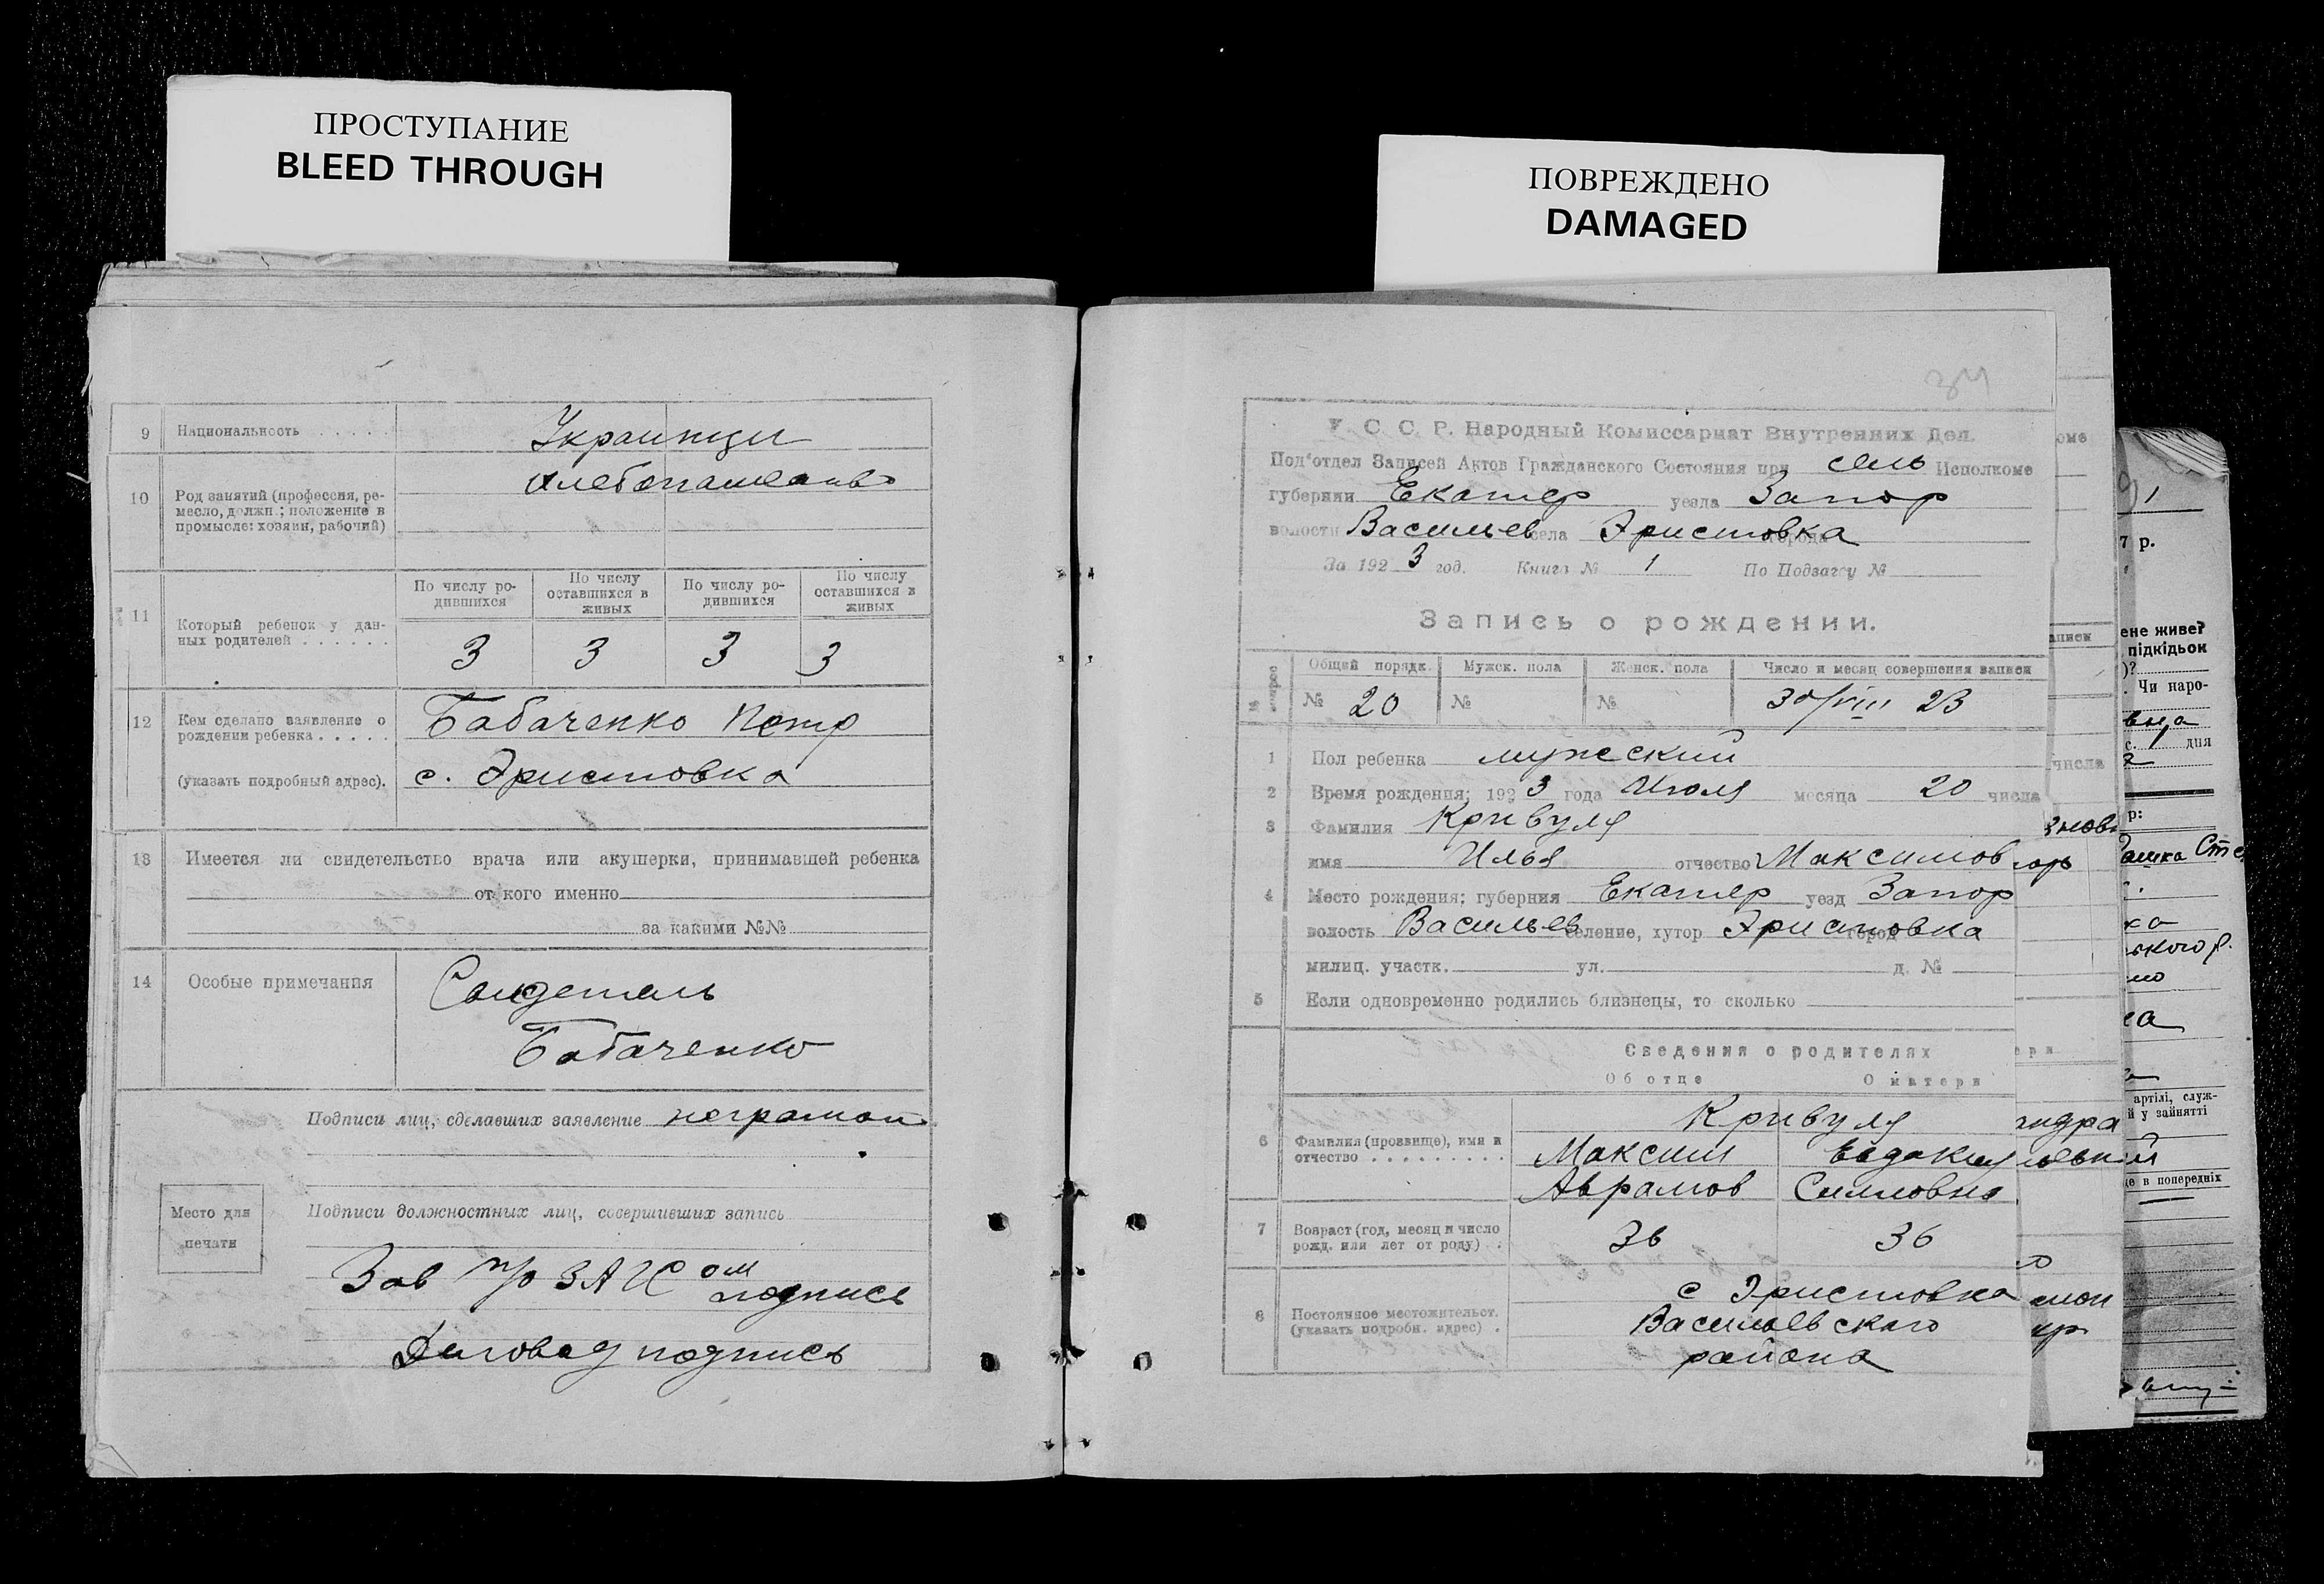 ПРОСТУПАНИЕ
BLEED THROUGH
ПОВРЕЖДЕНО
DAMAGED
9 Национальность . . . . . Украинцы
10 Род занятий (профессия, ре-
месло, должн.; положение в
промысле: хозяин, рабочий)
хлебопашество
11 Который ребенок у дан-
ных родителей . . . . . .
По числу ро-
дившихся
По число
оставшихся в
живых
По числу ро-
дившихся
По число
оставшихся в
живых
3 3 3 3
12 Кем сделано заявление о
рождении ребенка . . . . .
(указать подробный адрес).
Бабаченко Петр
с. Эристовка
13 Имеется ли свидетельство врача или акушерки, принимавшей ребенка
от кого именно
за какими №№
14 Особые примечания
Свидетель
Бабаченко
Подписи лиц, сделавших заявление неграмот
Место для
печати
Подписи должностных лиц, совершивших запись
Зав п/о ЗАГС ом
подпись
Деловод подпись
34
У. С. С. Р. Народный Комиссариат Внутренних Дел.
Под'отдел Записей Актов Гражданского Состояния при сель Исполкоме
губернии Екатер уезда Запор
волости Васильев села Эристовка города
За 1923 год. Книга № 1 По Подзагсу №
Запись о рождении.
Общей порядк. Мужск. пола Женск. пола Число и месяц совершения записи
№ 20 № № 30/VIII 23
1 Пол ребенка мужский
2 Время рождения; 1923 года Июля месяца 20 числа
3 Фамилия Кривуля
имя Илья отчество Максимов
4 Место рождения; губерния Екатер уезд Запор
волость Васильев селение, хутор Эристовка город
милиц. участк. ул. д. №
5 Если одновременно родились близнецы, то сколько
Сведения о родителях
Об отце О матери
6 Фамилия (прозвище), имя и
отчество . . . . . . . . .
Кривуля
Максим Евдокия
Аврамов Симовна
7 Возраст (год, месяц и число
рожд. или лет от роду) .
36 36
8 Постоянное местожительст.
(указать подробн. адрес) .
с Эристовка
Васильевского
района
оме
аписи
числа
ери
7 р.
ене живе?
підкідьок
)?
. Чи наро-
вна
с. 1 дня
р:
артілі, служ-
й у зайнятті
це в попередніх